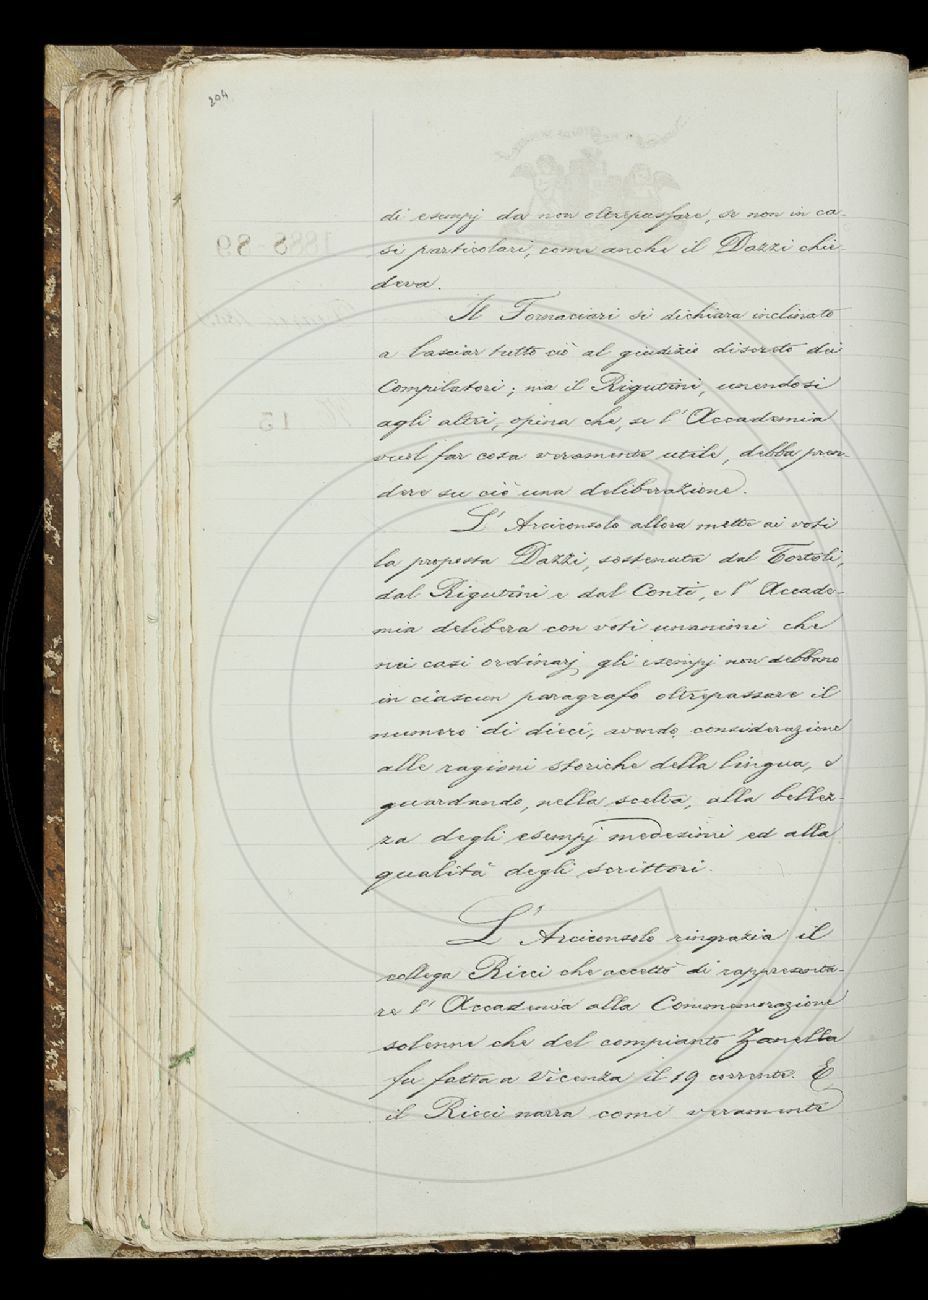 204
di esempj da non oltrepassare, se non in ca-
si particolari, come anche il Dazzi chie-
deva.
Il Fornaciari si dichiara inclinato
a lasciar tutto ciò al giudizio discreto dei
Compilatori; ma il Rigutini, unendosi
agli altri, opina che, se l'Accademia
vuol far cosa veramente utile, debba pren-
dere su ciò una deliberazione.
L'Arciconsolo allora mette ai voti
la proposta Dazzi, sostenuta dal Tortoli,
dal Rigutini e dal Conti, e l'Accade-
mia delibera con voti unanimi che
nei casi ordinarj gli esempj non debbano
in ciascun paragrafo oltrepassare il
numero di dieci, avendo considerazione
alle ragioni storiche della lingua, e
guardando, nella scelta, alla bellez-
za degli esempj medesimi ed alla
qualità degli scrittori.
L'Arciconsolo ringrazia il
collega Ricci che accettò di rappresenta-
re l'Accademia alla Commemorazione
solenne che del compianto Zanella
fu fatta a Vicenza il 19 corrente. E
il Ricci narra come veramente
1888-89
15